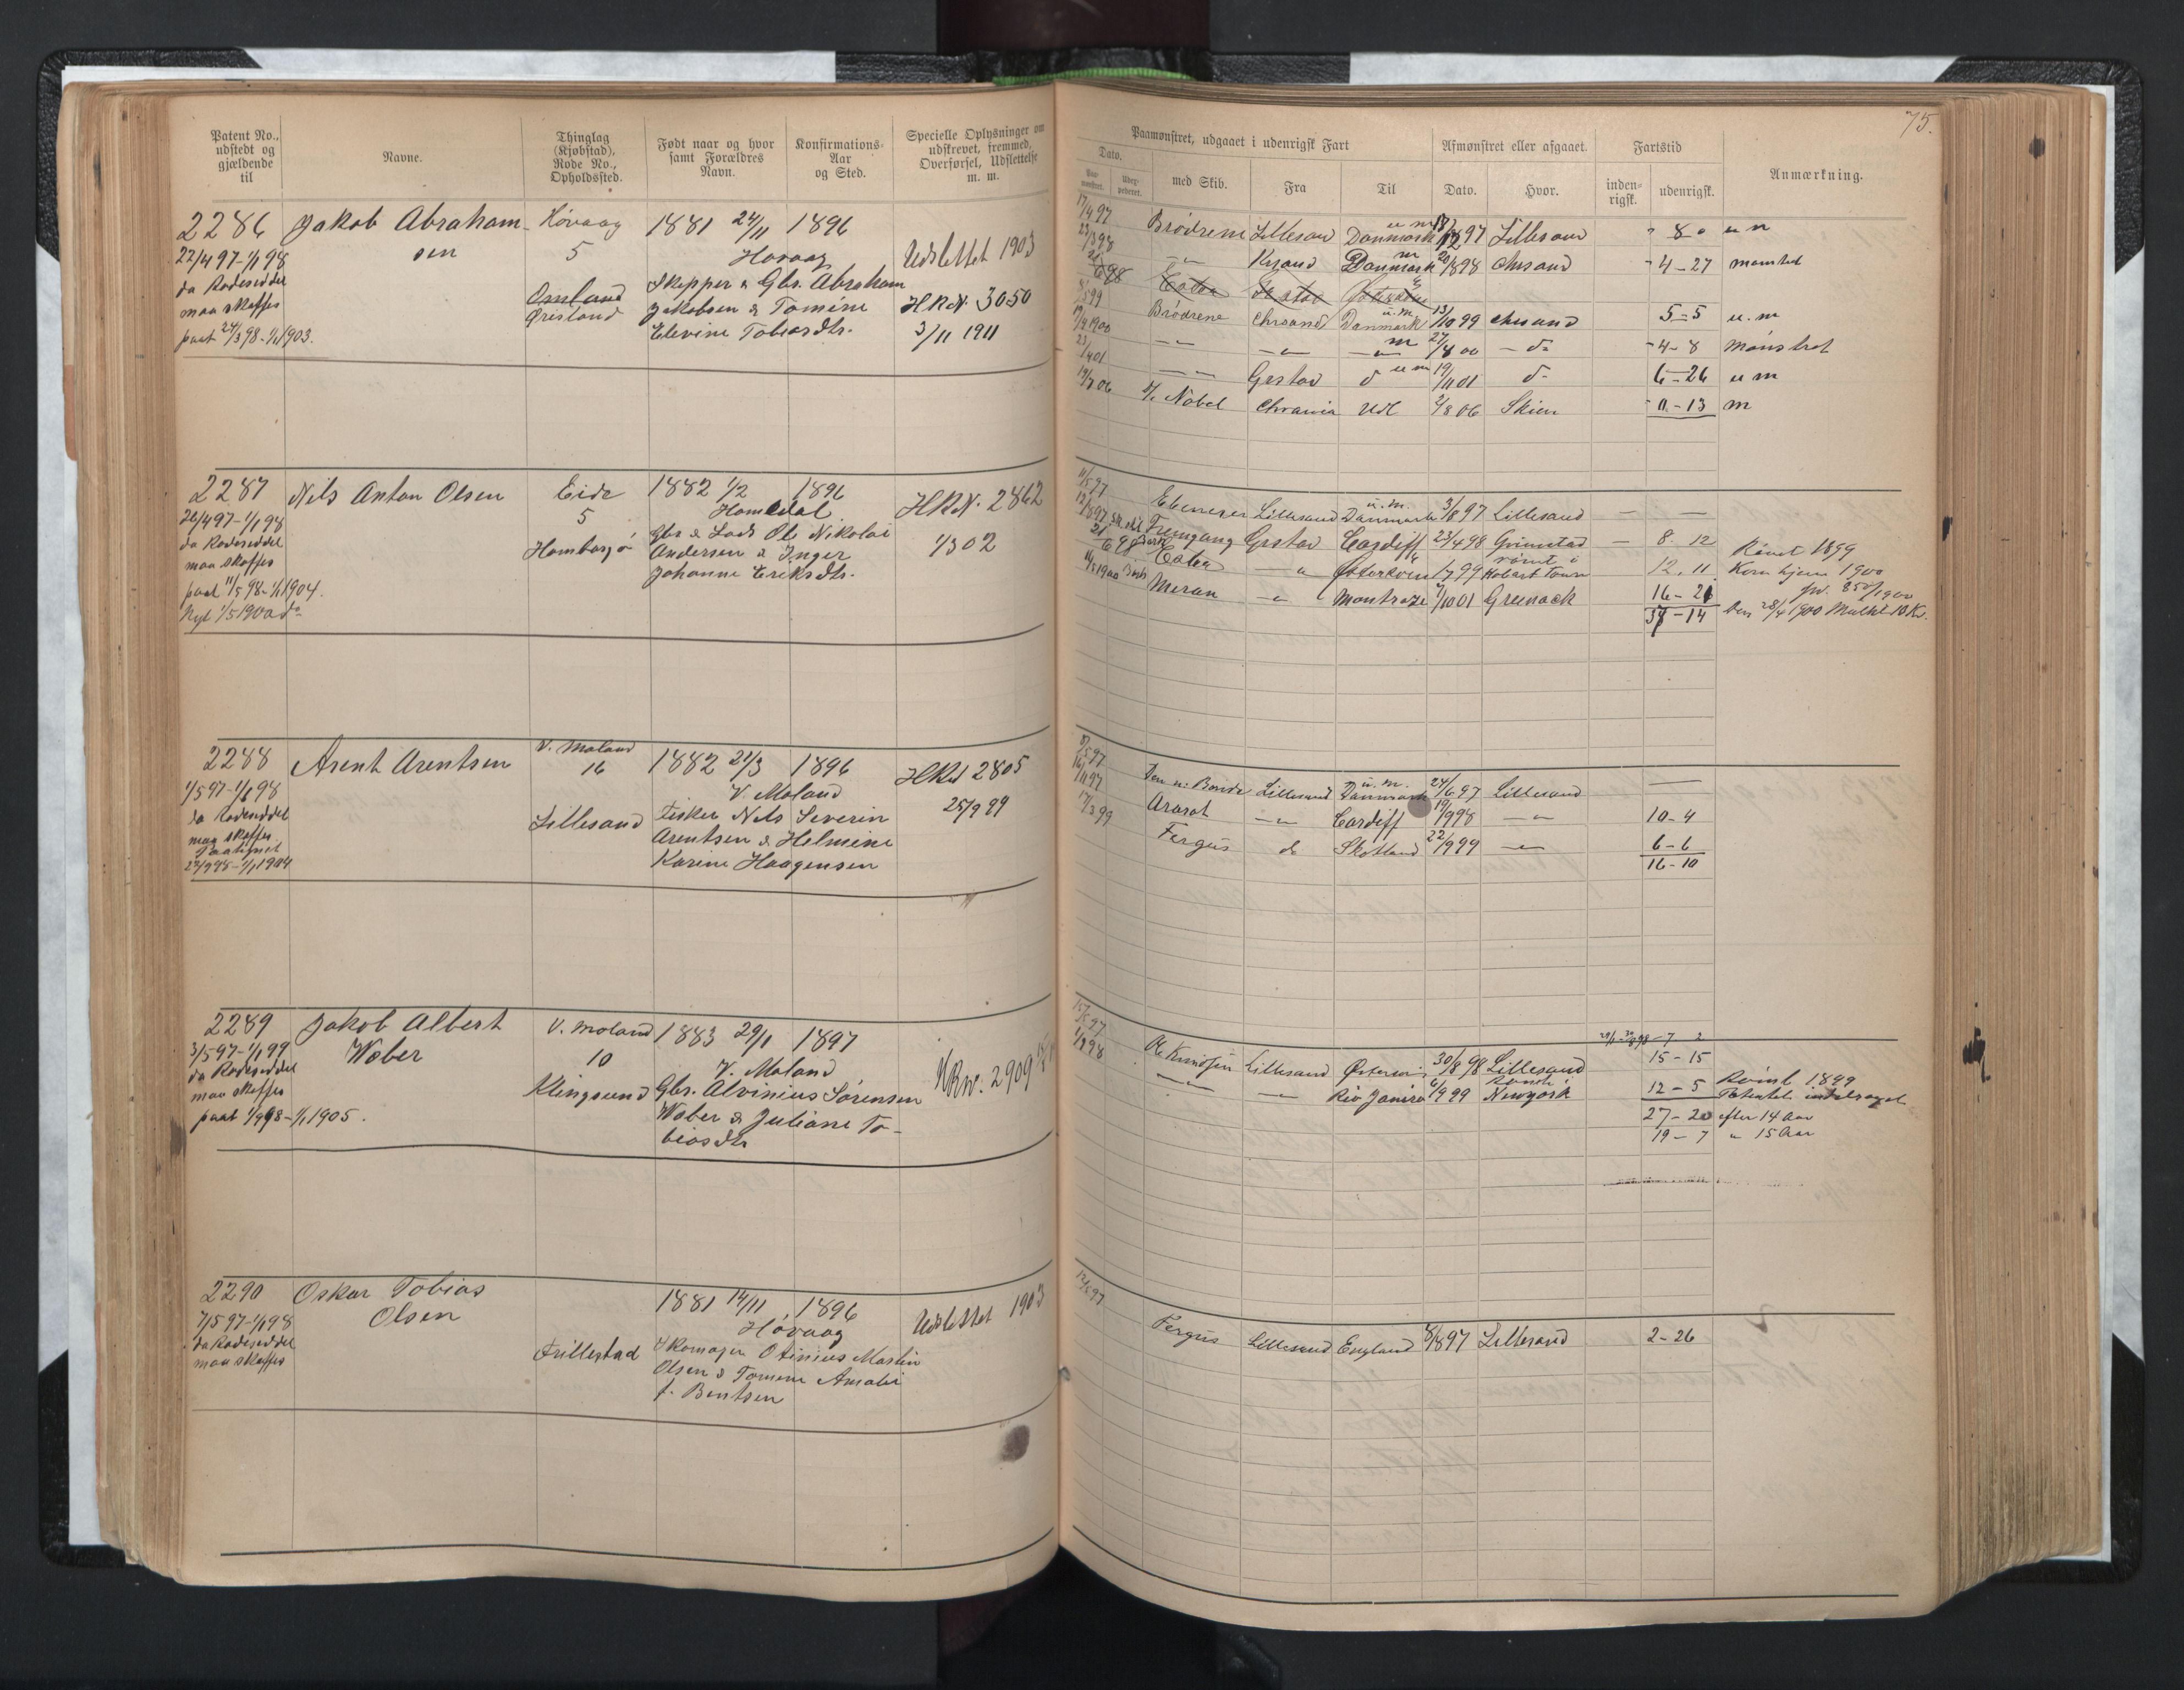 75.
Patent No., udstedt og gjældende til
Navne.
Thinglag (Kjøbstad), Rode No., Opholdssted.
Født naar og hvor samt Forældres Navn.
Konfirmations- Aar og Sted.
Specielle Oplysninger om udskrevet, fremmed, Overførsel, Udslettelse m. m.
Paamønstret, udgaaet i udenrigsk Fart
Afmønstret eller afgaaet.
Fartstid
Anmærkning.
Dato.
med Skib.
Fra
Til
Dato.
Hvor.
inden- rigsk.
udenrigsk.
2286 Jakob Abraham- Høvaag 1881 24/11 1896
22/4 97-1/1 98 sen 5 Høvaag Udslettet 1903
da Rodeseddel Skipper & Gbr. Abraham
maa skaffes Jakobsen & Tomine HRN. 3050
paat 24/3 98-1/1 1903. Elevine Tobiasdtr. 3/11 1911
17/4 97 Brødrene Lillesand Danmark 97 Lillesand 8 u m
23/3 98 Danmark 98 Chrsand 4-27 mønstret
Brødrene Chrsand Danmark u.m. 13/10 99 Chrsand 5-5 u.m
19/4 1900 m 27/8 00 4-8 mønstret
23/4 01 Grstad u m 19/11 01 6-26 u m
19/7 06 Nobel Chrania Udl 2/8 06 Skien 0-13 m
2287 Nils Anton Olsen Eide 1882 1/2 1896 HRN. 2862
26/4 97-1/1 98 5 Homedal
da Rodeseddel Gbr & Lods Ole Nikolai 1/3 02
maa skaffes Andersen & Inger
paat 11/5 98-1/1 1904. Johanne Eriksdtr.
Nyt 1/5 1900
11/5 97 Ebeneser Lillesand Danmark u.m. 3/8 97 Lillesand
12/8 97 Fremgang Grstad Cardiff 23/4 98 Grimstad 8. 12
98 Østerkøen 1/7 99 rømt i Hobart Town 12. 11 Rømt 1899
Kom hjem 1900
1900 Meran Montroze 7/10 01 Greenock 16-21
38-14 Den 28/4 1900 Mulkt 10 Kr.
2288 Arent Arentsen V. Moland 1882 21/3 1896 HRN 2805
1/5 97-1/1 98 16 V. Moland 25/9 99
da Rodeseddel Lillesand Fisker Nils Severin
maa skaffes Arentsen & Helmine
Paategnet Karine Haagensen
23/9 98-1/1 1904
97 Lillesand Danmark u.m. 24/6 97 Lillesand
97 Ararat Cardiff 19/9 98 10-4
17/3 99 Fergus do Skotland 22/9 99 6-6
16-10
2289 Jakob Albert V. Moland 1883 29/1 1897
3/5 97-1/1 99 Wober 10 V. Moland HRN. 2909
da Rodeseddel Klingsund Gbr. Alvinius Sørensen
maa skaffes Wober & Juliane To-
paat 1/9 98-1/1 1905. biasdtr
15/5 97 Ole Knudsen Lillesand 30/8 98 Lillesand 15-15
1/9 98 Rio Janiro 6/9 99 Newyork 12-5 Rømt 1899
Patentet inddraget
27-20 efter 14 Aar
19-7 " 15 Aar
2290 Oskar Tobias 1881 14/11 1896
7/5 97-1/1 98 Olsen Høvaag Udslettet 1903
da Rodeseddel Skomager Otinius Martin
maa skaffes Olsen & Tomine Amalie
f. Bentsen
12/5 97 Fergus Lillesand England 8/8 97 Lillesand 2-26